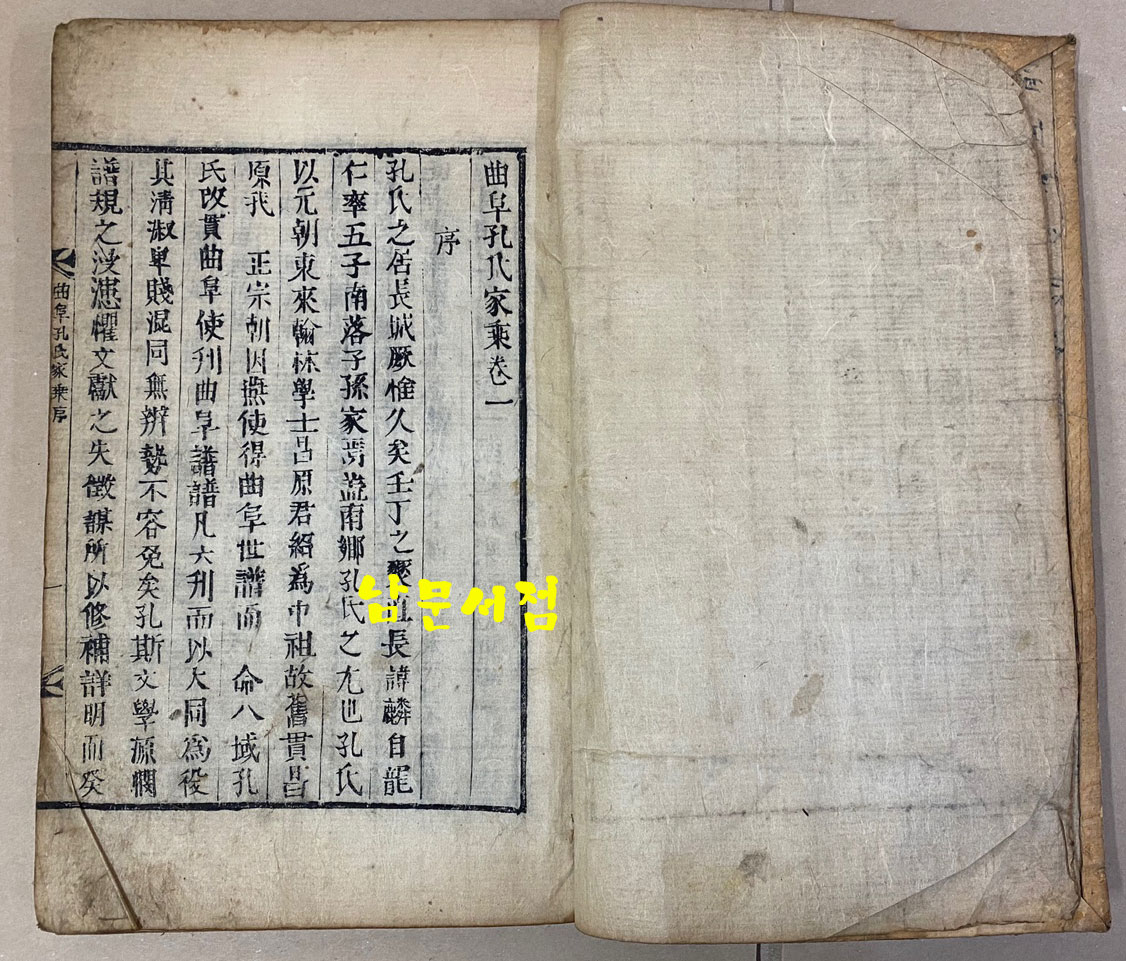 曲阜孔氏家乘卷一
序
孔氏之居長城厥惟久矣壬丁之 長諱麟自龍
仁率五子南落子孫家焉盖南鄉孔氏之尤也孔氏
以元朝東來翰林學士昌原君紹爲中祖故舊貫昌
原我 正宗朝因燕使得曲阜世譜而 命八域孔
氏改貫曲阜使刊曲阜譜譜凡六刊而以大同爲役
其淸淑卑賤混同無辨勢不容免矣孔斯文學源懶
譜規之漫漶懼文獻之失徵謀所以修補詳明而癸
曲阜孔氏家乘序
一
남문서점